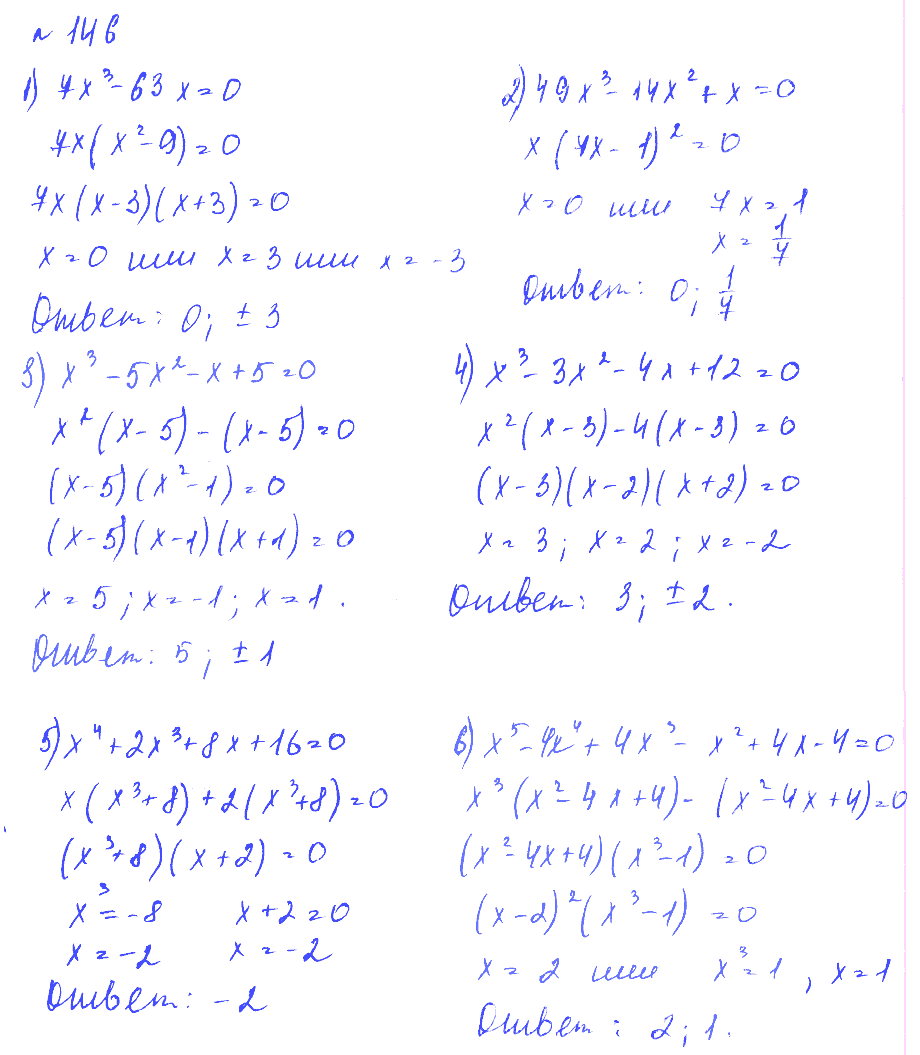 № 146
1) 7x³ - 63x = 0
7x(x² - 9) = 0
7x(x - 3)(x + 3) = 0
x = 0 или x = 3 или x = -3
Ответ: 0; ± 3
2) 49x³ - 14x² + x = 0
x(7x - 1)² = 0
x = 0 или 7x = 1
x = 1/7
Ответ: 0; 1/7
3) x³ - 5x² - x + 5 = 0
x²(x - 5) - (x - 5) = 0
(x - 5)(x² - 1) = 0
(x - 5)(x - 1)(x + 1) = 0
x = 5; x = -1; x = 1.
Ответ: 5; ± 1
4) x³ - 3x² - 4x + 12 = 0
x²(x - 3) - 4(x - 3) = 0
(x - 3)(x - 2)(x + 2) = 0
x = 3; x = 2; x = -2
Ответ: 3; ± 2.
5) x⁴ + 2x³ + 8x + 16 = 0
x(x³ + 8) + 2(x³ + 8) = 0
(x³ + 8)(x + 2) = 0
x³ = -8 x + 2 = 0
x = -2 x = -2
Ответ: -2
6) x⁵ - 4x⁴ + 4x³ - x² + 4x - 4 = 0
x³(x² - 4x + 4) - (x² - 4x + 4) = 0
(x² - 4x + 4)(x³ - 1) = 0
(x - 2)²(x³ - 1) = 0
x = 2 или x³ = 1, x = 1
Ответ: 2; 1.